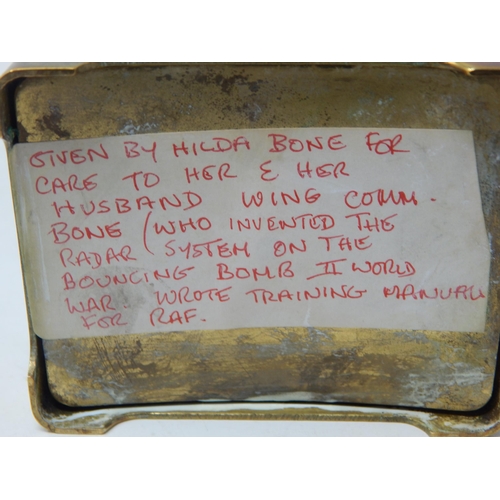 GIVEN BY HILDA BONE FOR
CARE TO HER & HER
HUSBAND WING COMM.
BONE (WHO INVENTED THE
RADAR SYSTEM ON THE
BOUNCING BOMB II WORLD
WAR. WROTE TRAINING MANUAL
FOR RAF.